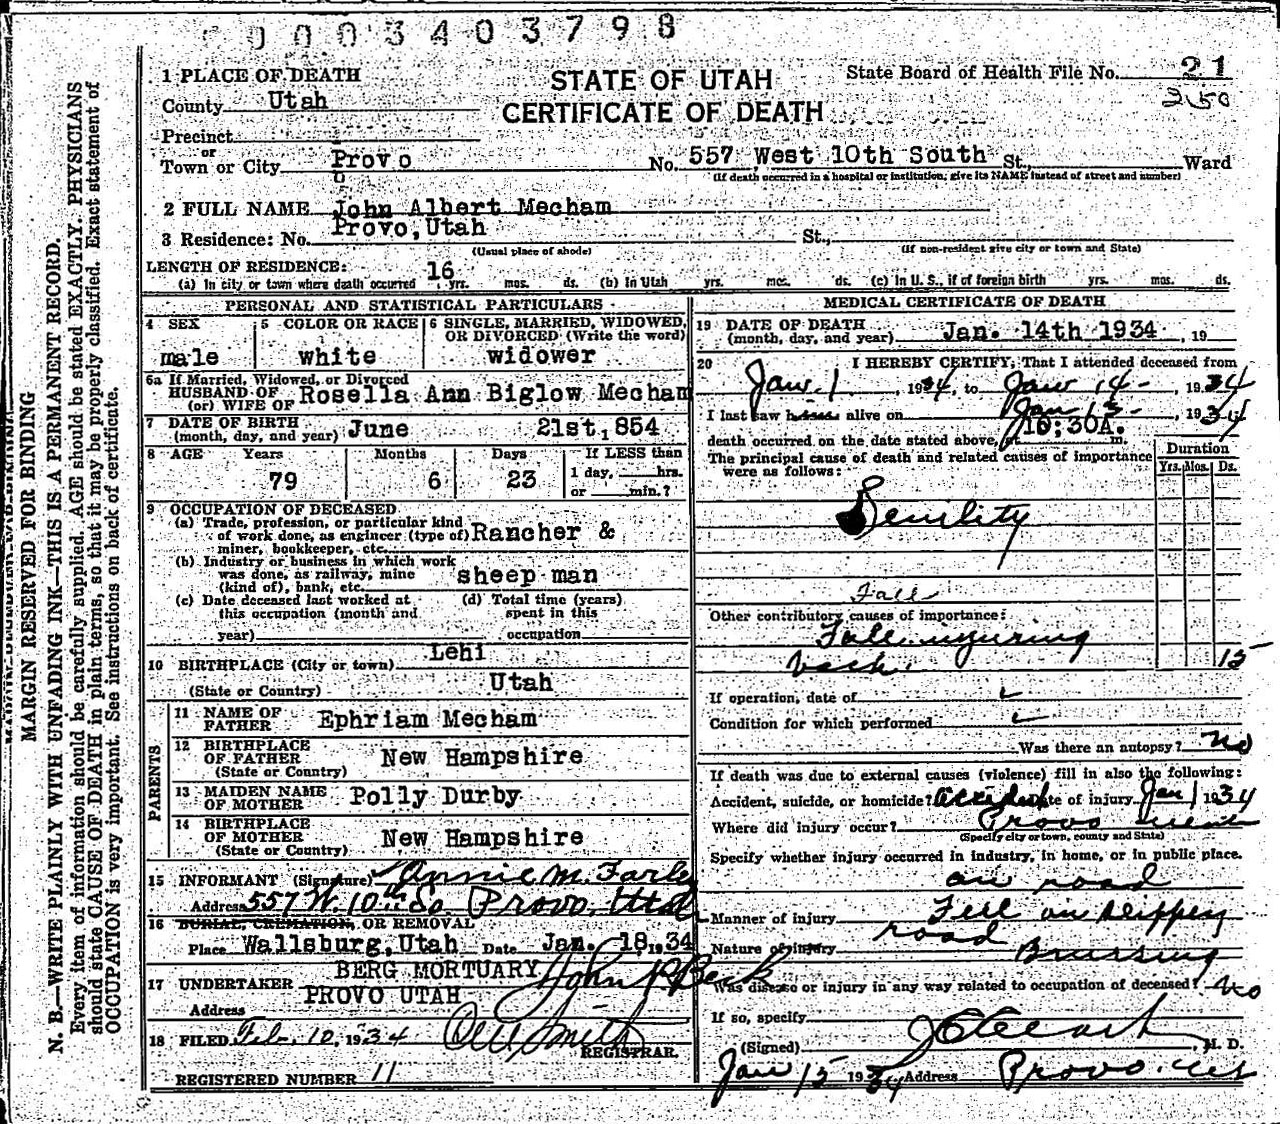 0003403798
1 PLACE OF DEATH
STATE OF UTAH
CERTIFICATE OF DEATH
State Board of Health File No. 21
250
County Utah
Precinct
or
Town or City Provo
No. 557 West 10th South St., Ward
(If death occurred in a hospital or institution, give its NAME instead of street and number)
2 FULL NAME John Albert Mecham
3 Residence: No. Provo, Utah St.,
(Usual place of abode) (If non-resident give city or town and State)
LENGTH OF RESIDENCE:
(a) In city or town where death occurred 16 yrs. mos. ds. (b) In Utah yrs. mos. ds. (c) In U. S., if of foreign birth yrs. mos. ds.
PERSONAL AND STATISTICAL PARTICULARS
4 SEX male
5 COLOR OR RACE white
6 SINGLE, MARRIED, WIDOWED, OR DIVORCED (Write the word) widower
6a If Married, Widowed, or Divorced
HUSBAND OF
(or) WIFE OF Rosella Ann Biglow Mecham
7 DATE OF BIRTH
(month, day, and year) June 21st, 854
8 AGE Years Months Days If LESS than
79 6 23 1 day, hrs.
or min.?
9 OCCUPATION OF DECEASED
(a) Trade, profession, or particular kind
of work done, as engineer (type of) Rancher &
miner, bookkeeper, etc.
(b) Industry or business in which work
was done, as railway, mine sheep man
(kind of), bank, etc.
(c) Date deceased last worked at (d) Total time (years)
this occupation (month and spent in this
year) occupation
10 BIRTHPLACE (City or town) Lehi
(State or Country) Utah
PARENTS
11 NAME OF
FATHER Ephriam Mecham
12 BIRTHPLACE
OF FATHER New Hampshire
(State or Country)
13 MAIDEN NAME
OF MOTHER Polly Durby
14 BIRTHPLACE
OF MOTHER New Hampshire
(State or Country)
15 INFORMANT (Signature) Annie M. Farley
Address 557 W. 10th So Provo, Utah
16 BURIAL, CREMATION, OR REMOVAL
Place Wallsburg, Utah Date Jan. 18, 1934
17 UNDERTAKER BERG MORTUARY
Address PROVO UTAH
18 FILED Feb. 10, 1934
REGISTRAR.
REGISTERED NUMBER 11
MEDICAL CERTIFICATE OF DEATH
19 DATE OF DEATH
(month, day, and year) Jan. 14th 1934, 19
20 I HEREBY CERTIFY, That I attended deceased from
Jan. 1, 1934, to Jan 14-, 1934
I last saw him alive on Jan 13-, 1934
death occurred on the date stated above, at 10:30A. m.
The principal cause of death and related causes of importance
were as follows:
Duration
Yrs. Mos. Ds.
Senility
Fall
Other contributory causes of importance:
Fall injuring
back. 15
If operation, date of
Condition for which performed
Was there an autopsy? No
If death was due to external causes (violence) fill in also the following:
Accident, suicide, or homicide? Accident Date of injury Jan 1 1934
Where did injury occur? Provo
(Specify city or town, county and State)
Specify whether injury occurred in industry, in home, or in public place.
on road
Manner of injury Fell on slippery
road
Nature of injury Bruising
Was disease or injury in any way related to occupation of deceased? No
If so, specify
(Signed) M. D.
Jan 15 1934 Address Provo.
MARGIN RESERVED FOR BINDING
N. B.—WRITE PLAINLY WITH UNFADING INK—THIS IS A PERMANENT RECORD.
Every item of information should be carefully supplied. AGE should be stated EXACTLY. PHYSICIANS
should state CAUSE OF DEATH in plain terms, so that it may be properly classified. Exact statement of
OCCUPATION is very important. See instructions on back of certificate.